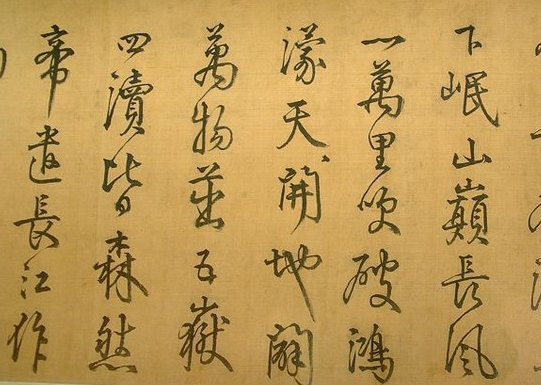 下岷山巔長風
一萬里吹破鴻
濛天開地闢
萬物茁五嶽
四瀆皆森然
帝遣長江作